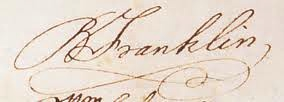 B Franklin,